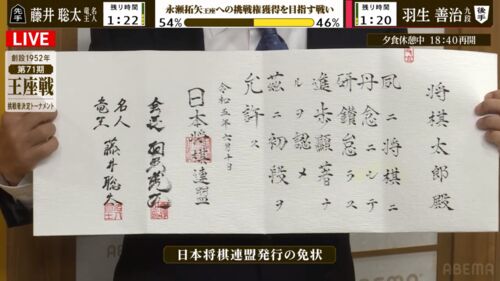 先手
藤井 聡太 竜王 名人
残り時間
1:22
永瀬拓矢王座への挑戦権獲得を目指す戦い
54%
46%
残り時間
1:20
羽生 善治 九段
後手
LIVE
夕食休憩中 18:40再開
創設1952年
第71期
王座戦
挑戦者決定トーナメント
将棋太郎殿
夙ニ将棋ニ
丹念ニシテ
研鑽怠ラス
進歩顕著ナ
ルヲ認メ
茲ニ初段ヲ
允許ス
令和五年六月十日
日本将棋連盟
会長
名人
竜王 藤井聡太
日本将棋連盟発行の免状
ABEMA
ABEMA